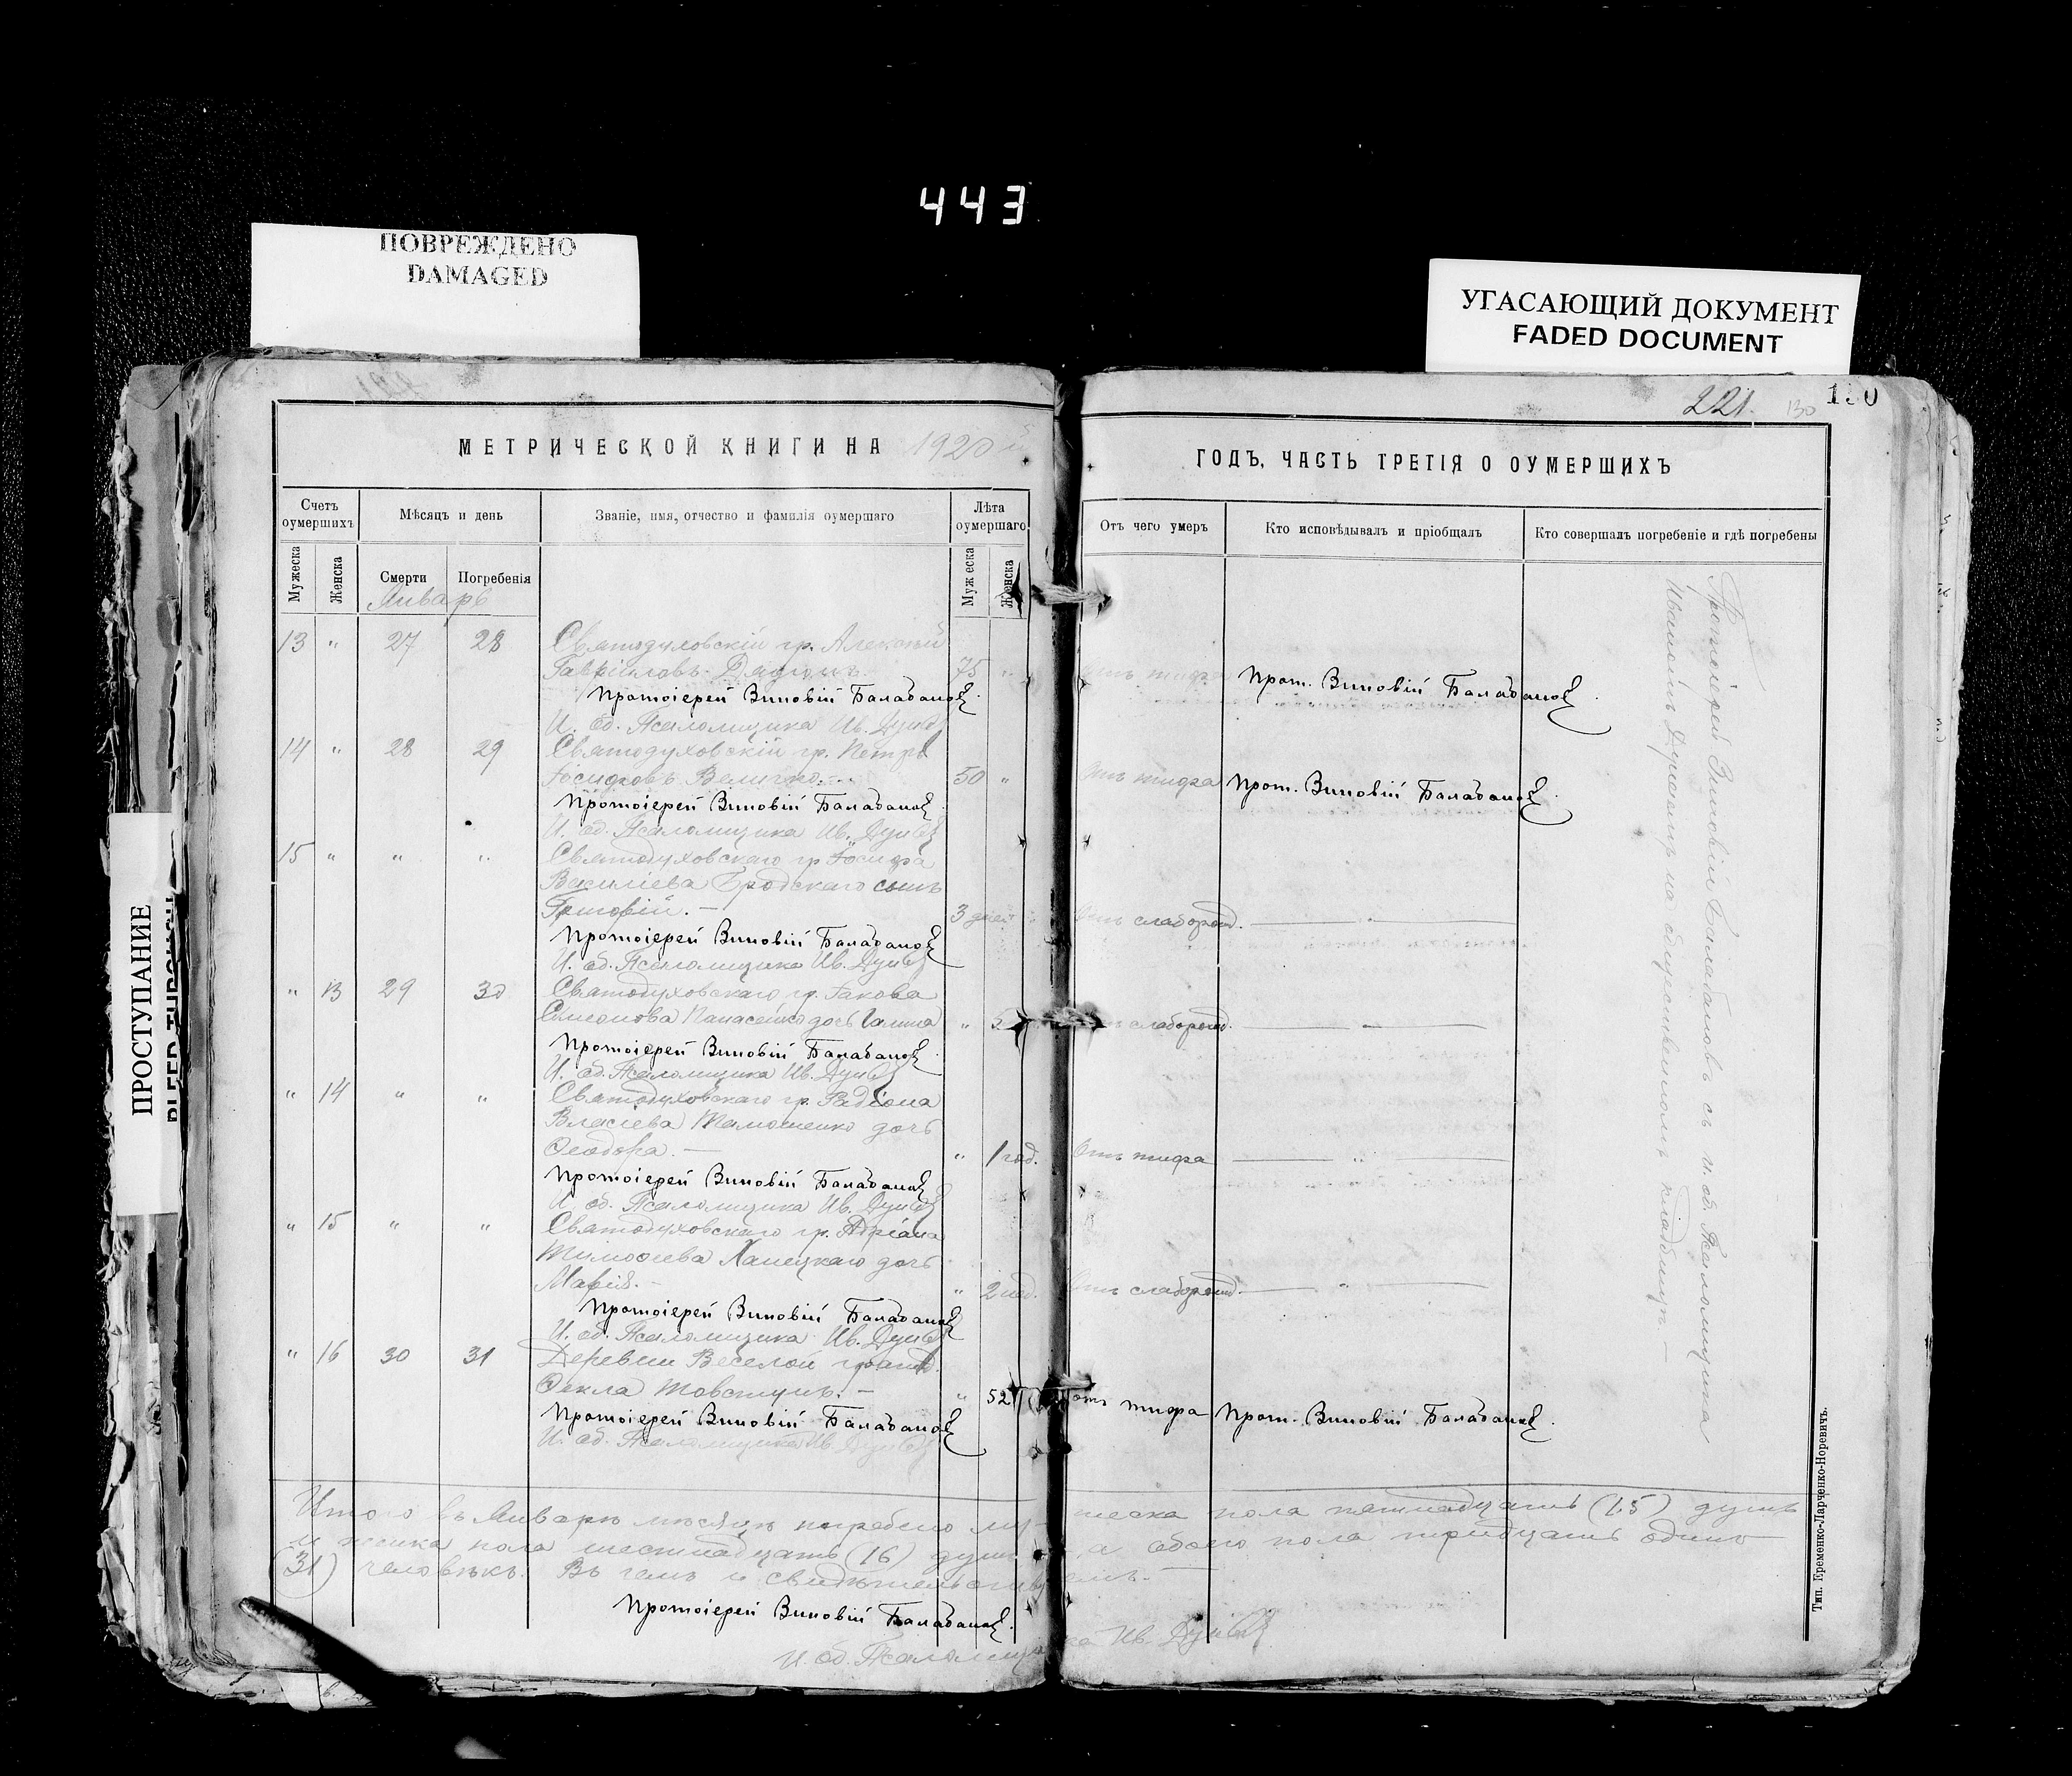 443
ПОВРЕЖДЕНО
DAMAGED
УГАСАЮЩИЙ ДОКУМЕНТ
FADED DOCUMENT
ПРОСТУПАНИЕ
BLEED THROUGH
221.
130
МЕТРИЧЕСКОЙ КНИГИ НА 1920 й
ГОДЪ, ЧАСТЬ ТРЕТІЯ О ОУМЕРШИХЪ
Счетъ оумершихъ
Мѣсяцъ и день
Званіе, имя, отчество и фамилія оумершаго
Лѣта оумершаго
Отъ чего умеръ
Кто исповѣдывалъ и пріобщалъ
Кто совершалъ погребеніе и гдѣ погребены
Мужеска
Женска
Смерти
Погребенія
Мужеска
Женска
Январь
13 " 27 28 Святодуховскій гр. Алексій
Гавріиловъ 75 " отъ тифа Прот. Зиновій Балабановъ
Протоіерей Зиновій Балабановъ.
И. об. Псаломщика Ив.
14 " 28 29 Святодуховскій гр. Петръ
Іосифовъ Величко. 50 " Отъ тифа Прот. Зиновій Балабановъ
Протоіерей Зиновій Балабановъ
И. об. Псаломщика Ив.
15 " " " Святодуховскаго гр. Іосифа
Василіева Бродскаго сынъ
3 дней Отъ слаборожд. "
Протоіерей Зиновій Балабановъ
И. об. Псаломщика Ив.
" 13 29 30 Святодуховскаго гр. Іакова
Симеонова Панасенко дочь Галина " 5 слаборожд. "
Протоіерей Зиновій Балабановъ
И. об. Псаломщика Ив.
" 14 " " Святодуховскаго гр. Радіона
Власіева Тимошенко дочь
Ѳеодора. " 1 год. Отъ тифа "
Протоіерей Зиновій Балабановъ
И. об. Псаломщика Ив.
" 15 " " Святодуховскаго гр. Адріана
Тимоѳеева дочь
Марія. " 2 нед. Отъ слаборожд. "
Протоіерей Зиновій Балабановъ
И. об. Псаломщика Ив.
" 16 30 31 Деревни Веселой гражд.
Ѳекла Товстунъ. " 52 отъ тифа Прот. Зиновій Балабановъ.
Протоіерей Зиновій Балабановъ
И. об. Псаломщика Ив.
Протоіерей Зиновій Балабановъ съ и. об. Псаломщика
Иваномъ на общественномъ кладбищѣ.
Итого въ Январѣ мѣсяцѣ погребено мужеска пола пятнадцать (15) душъ
и женска пола шестнадцать (16) душъ а обоего пола тридцать одинъ
(31) человѣкъ. Въ чемъ и свидѣтельствуемъ.
Протоіерей Зиновій Балабановъ.
И. об. Псаломщика Ив.
Тип. Еременко-Ларченко-Норевичъ.